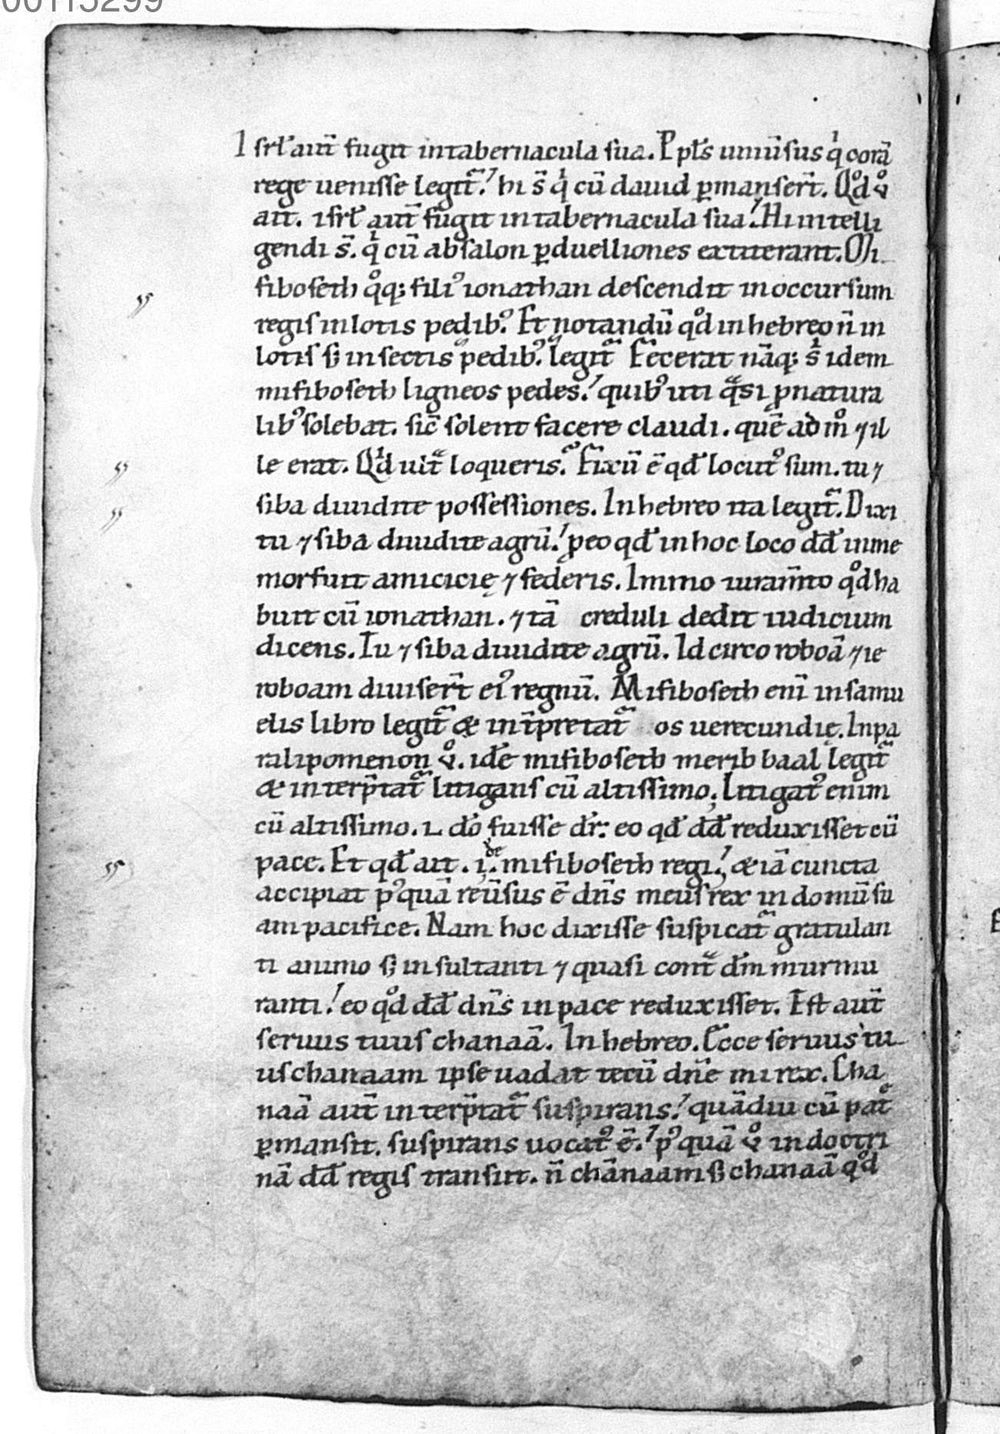 00115299
Isrł aut̄ fugit in tabernacula sua. Ppls̄ uniūsus qͥ corā
rege uenisse legit᷑. hi s̄ qͥ cū dauid ꝑmanser̄t. Qd̊ ů
ait. isrł aut̄ fugit in tabernacula sua. Hi intelli
gendi s̄. qͥ cū absalon ꝑduelliones extiterant. Mi
fiboseth qͦq; fili᾽ ionathan descendit in occursum
regis inlotis pedib᾽. Et notandū qd̊ in hebreo n̄ in
lotis sꝫ insectis pedib᾽ legit᷑. Fecerat nāq; s̄ idem
mifiboseth ligneos pedes. quib᾽ uti qᷓsi ꝓ natura
lib᾽ solebat. sic̄ solent facere claudi. quē admͦ ⁊ il
le erat. Qͥd ult᷑ loqueris. Fixū ē qd̄ locut᾽ sum. tu ⁊
siba diuidite possessiones. In hebreo ita legit᷑. Dixi
tu ⁊ siba diuidite agrū. ꝓ eo qd̄ in hoc loco dd̄ inme
mor fuit amicicię ⁊ federis. Immo iuram̄to qd̊ ha
buit cū ionathan. ⁊ tā creduli dedit iudicium
dicens. Tu ⁊ siba diuidite agrū. Id circo roboā ⁊ ie
roboam diuiser̄t ei᾽ regnū. Mifiboseth enī in samu
elis libro legit᷑ & int̄pretat᷑ os uerecundię. In pa
ralipomenon ů. idē mifiboseth merib baal legit᷑
& interp̄tat᷑ litigans cū altissimo. Litigat᾽ enim
cū altissimo. .i. dō fuisse dr̄: eo qd̄ dd̄ reduxisset cū
pace. Et qd̄ ait. mifiboseth regi. & iā cuncta
accipiat p᾽quā reūsus ē dn̄s meus rex in domū su
am pacifice. Nam hoc dixisse suspicat᷑ gratulan
ti animo sꝫ insultanti ⁊ quasi contᷓ dm̄ murmu
ranti. eo qd̊ dd̄ dn̄s in pace reduxisset. Est aut̄
seruus tuus chanaā. In hebreo. Ecce seruus tu
us chanaam ipse uadat tecū dn̄e mi rex. Cha
naā aut̄ interp̄tat᷑ suspirans. quādiu cū patͤ
ꝑmansit. suspirans uocat᾽ ē. p᾽quā ů in doctri
nā dd̄ regis transiit. n̄ chānaam sꝫ chanaā qd̊